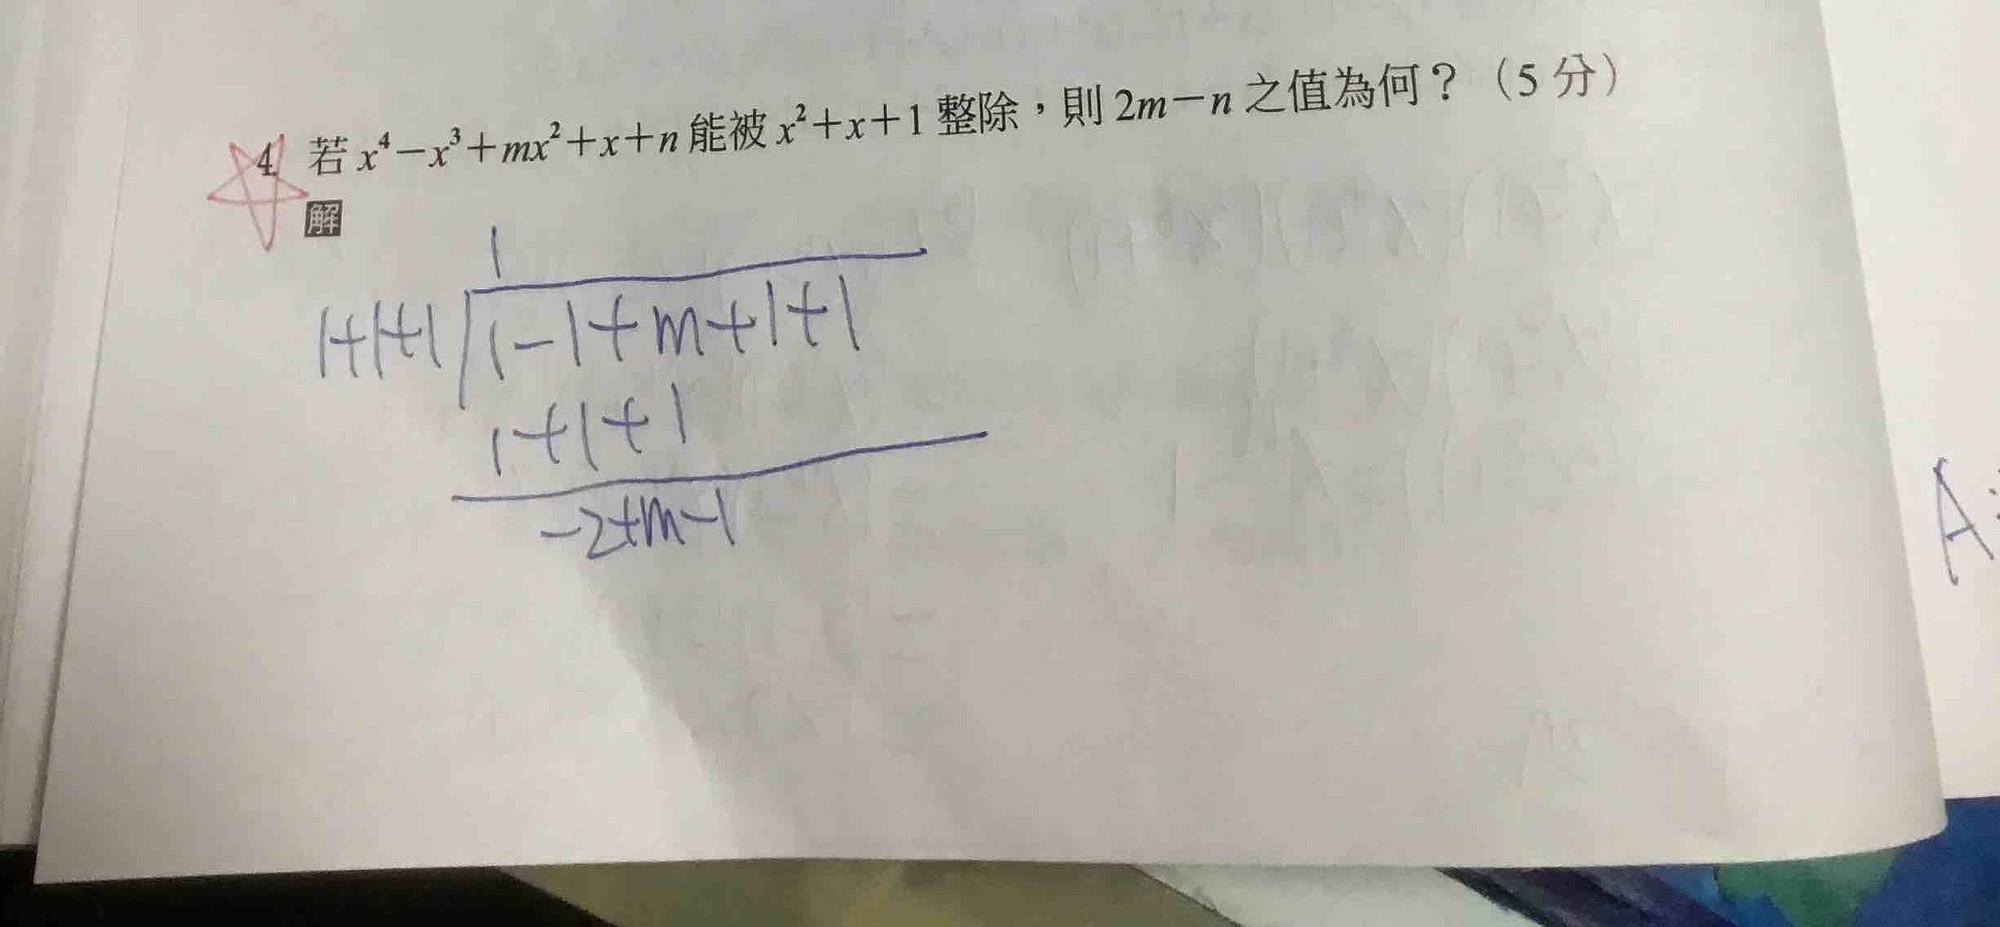 4. 若 x⁴－x³＋mx²＋x＋n 能被 x²＋x＋1 整除，則 2m－n 之值為何？（5 分）
解
1
1+1+1 1-1+m+1+1
1+1+1
-2+m-1
A: